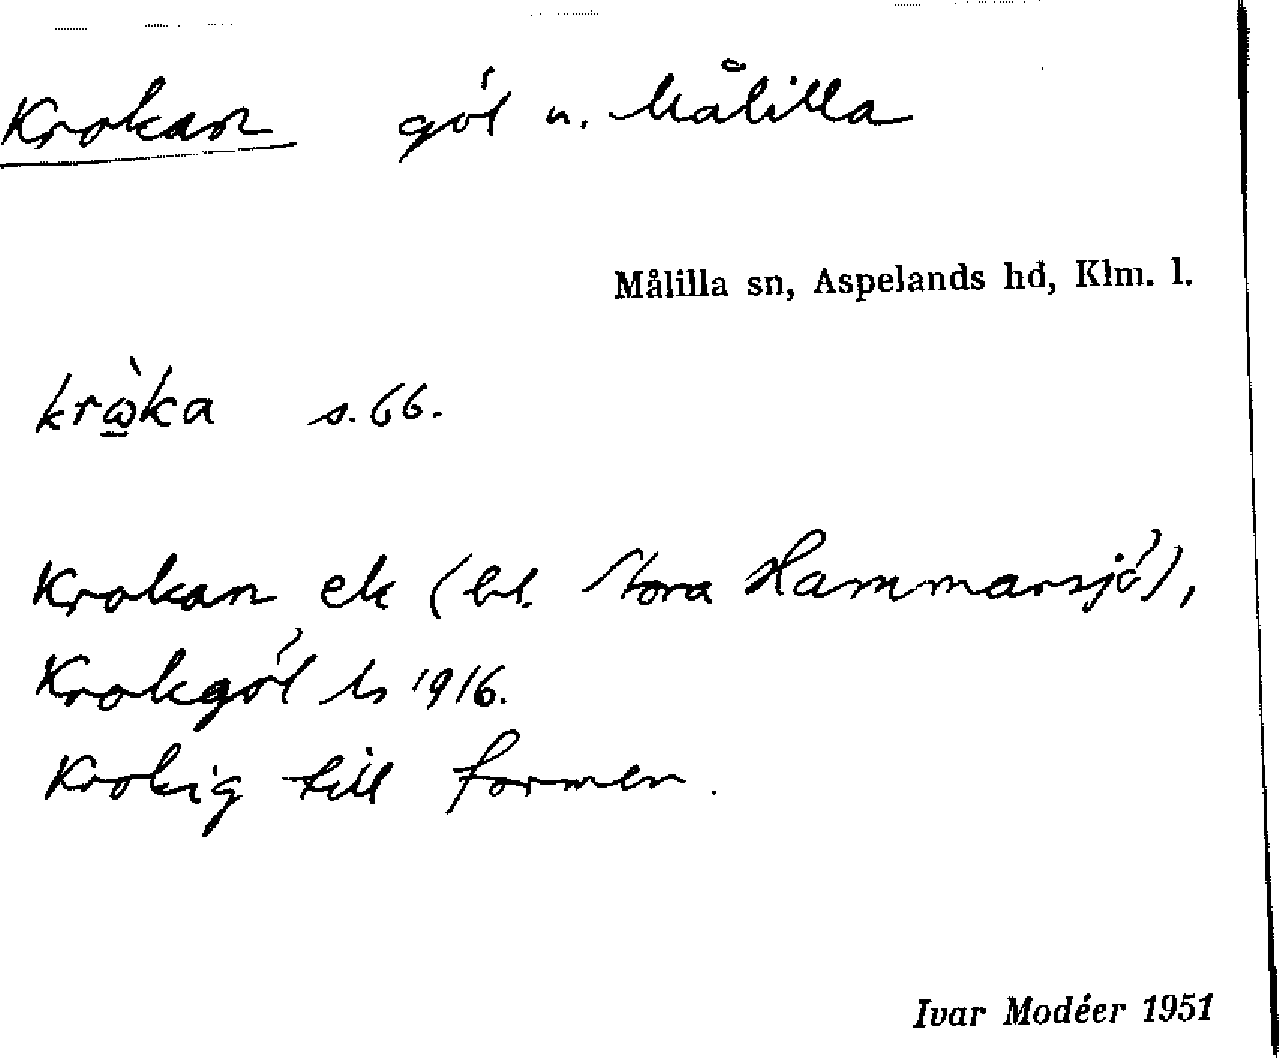 Krokan göl n. Målilla
Målilla sn, Aspelands hd, Klm. l.
krὼ̲ka s. 66.
Krokan ek (bl. Stora Hammarsjö),
Krokgöl ts 1916.
Krokig till formen.
Ivar Modéer 1951